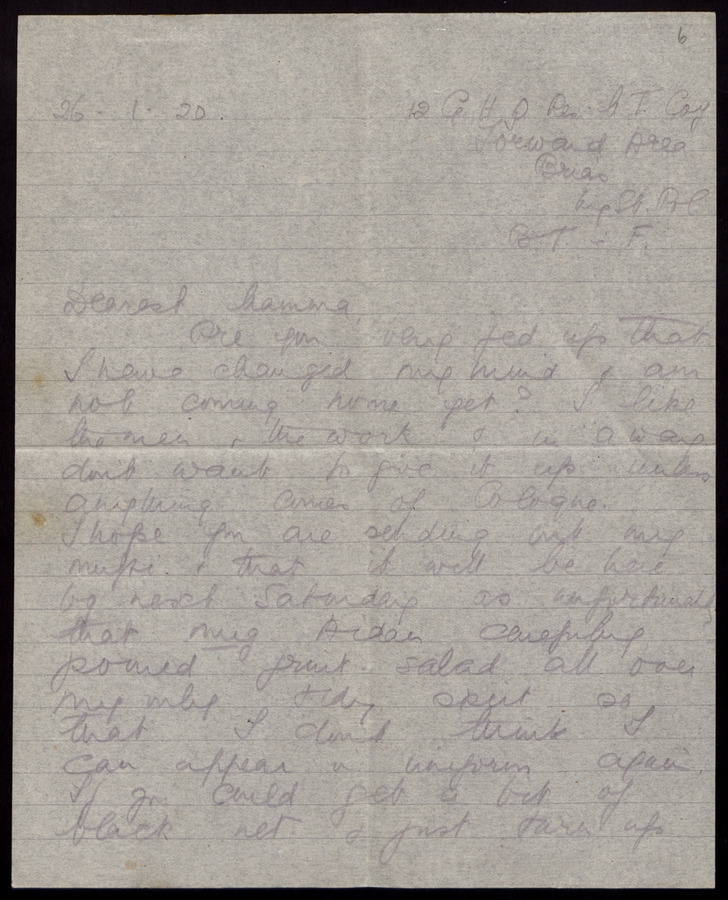 6
26 - 1 - 20. 12 G. H. Q Res. M T. Coy
Forward Area
Brias
B T - F.
Dearest Mamma,
Are you very fed up that
I have changed my mind & am
not coming home yet? I like
the men & the work & in a way
dont want to give it up unless
anything comes of Cologne.
I hope you are sending out my
mufti & that it will be here
by next Saturday as unfortunately
that Aidan carefully
poured fruit salad all over
my only tidy skirt so
that I dont think I
can appear in uniform again.
If you could get a bit of
black net & just turn up